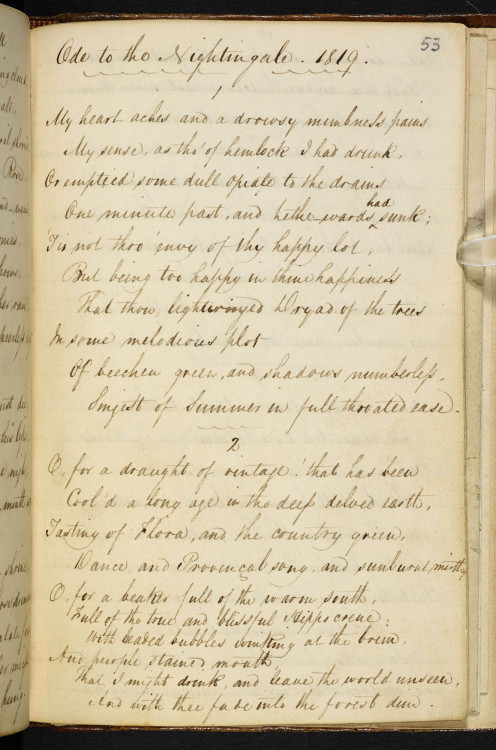 53
Ode to the Nightingale. 1819.
1
My heart aches and a drowsy numbness pains
My sense, as tho' of hemlock I had drunk,
Or emptied some dull opiate to the drains
One minute past, and lethe-wards had sunk;
'Tis not thro' envy of thy happy lot,
But being too happy in thine happiness
That thou, lightwinged Dryad of the trees
In some melodious plot
Of beechen green, and shadows numberless,
Singest of Summer in full throated ease.
2
O, for a draught of vintage! that has been
Cool'd a long age in the deep delved earth,
Tasting of Flora, and the country green,
Dance, and Provençal song, and sunburnt mirth;
O, for a beaker full of the warm south,
Full of the true and blissful Hippocrene;
With beaded bubbles winking at the brim.
And purple stained mouth,
That I might drink, and leave the world unseen,
And with thee fade into the forest dim.